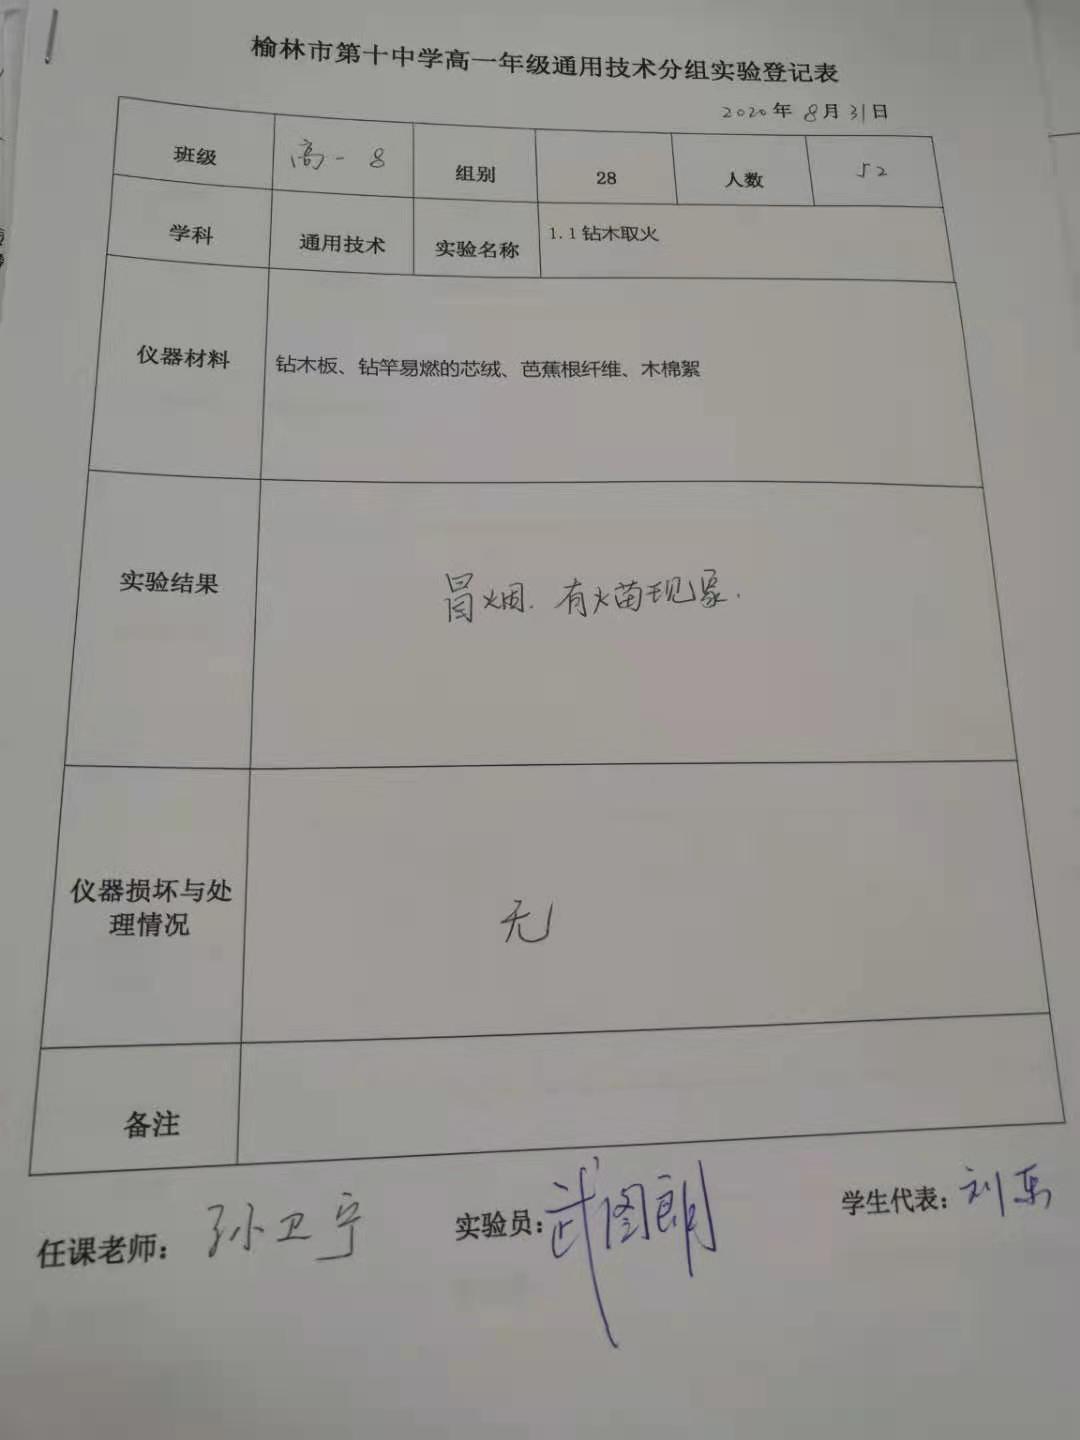 榆林市第十中学高一年级通用技术分组实验登记表
2020年 8月 31日
班级 高一 8 组别 28 人数 52
学科 通用技术 实验名称 1.1 钻木取火
仪器材料 钻木板、钻竿易燃的芯绒、芭蕉根纤维、木棉絮
实验结果 冒烟. 有火苗现象.
仪器损坏与处
理情况 无
备注
任课老师: 孙卫宁 实验员: 武图朗 学生代表: 刘